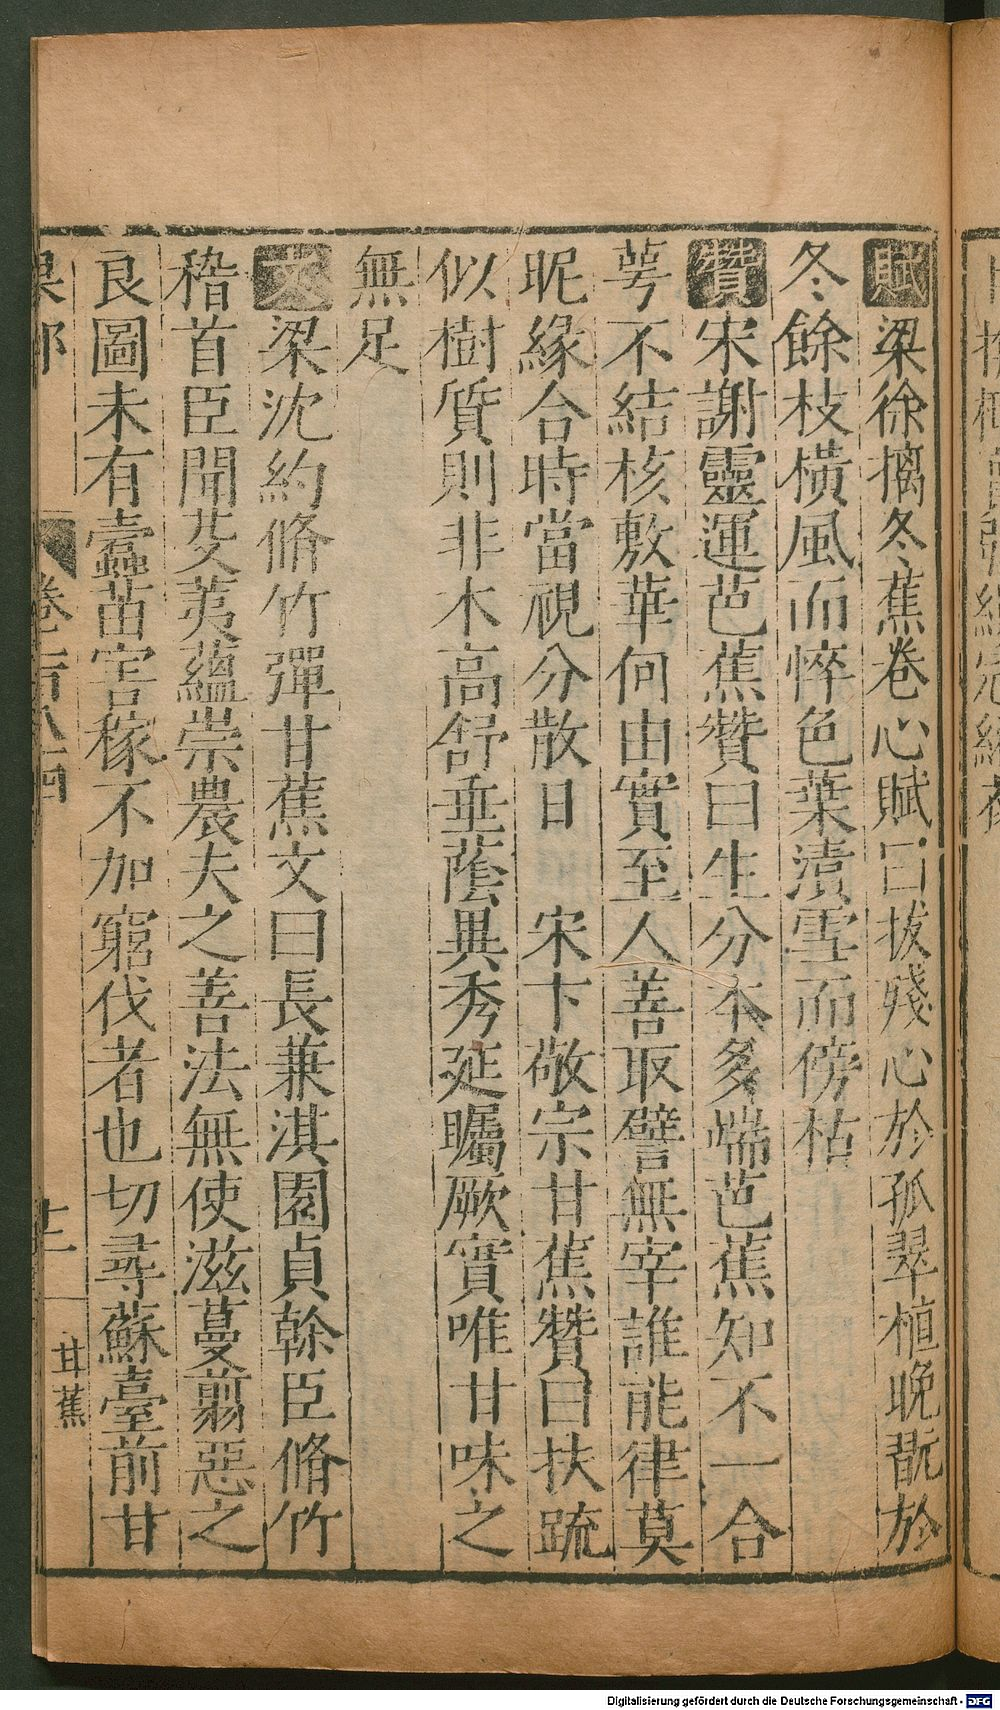 賦梁徐摛冬蕉卷心賦曰拔殘心於孤翠植晚翫於
冬餘枝橫風而悴色葉漬雪而傍枯
贊宋謝靈運芭蕉贊曰生分本多喘芭蕉知不一合
萼不結核敷華何由實至人善取譬無宰誰能律莫
昵緣合時當視分散日 宋卞敬宗甘蕉贊曰扶疏
似樹質則非木高舒垂蔭異秀延矚厥實唯甘味之
無足
文梁沈約脩竹彈甘蕉文曰長兼淇園貞幹臣脩竹
稽首臣聞芟荑蘊崇農夫之善法無使滋蔓翦惡之
良圖未有蠹苗害稼不加窮伐者也切尋蘇臺前甘
果部 卷一百八四 十二 甘蕉
Digitalisierung gefördert durch die Deutsche Forschungsgemeinschaft - DFG